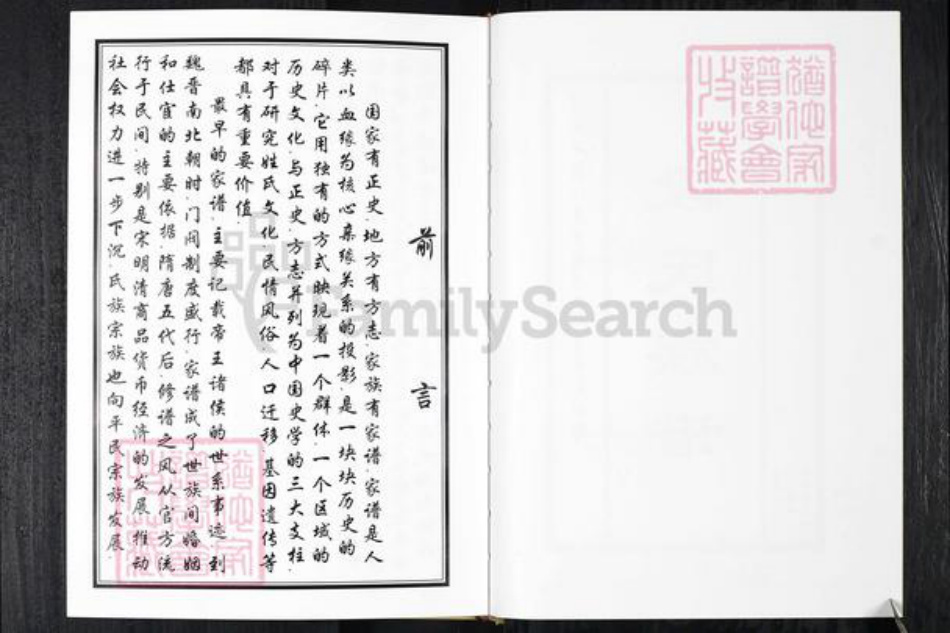 前言
国家有正史.地方有方志.家族有家谱.家谱是人
类以血缘为核心亲缘关系的投影.是一块块历史的
碎片.它用独有的方式映现着一个群体.一个区域的
历史文化.与正史.方志并列为中国史学的三大支柱.
对于研究姓氏文化.民情风俗.人口迁移.基因遗传等
都具有重要价值.
最早的家谱.主要记载帝王诸侯的世系事迹.到
魏晋南北朝时.门阀制度盛行.家谱成了世族间婚姻
和仕宦的主要依据.隋唐五代后.修谱之风从官方流
行于民间.特别是宋明清商品货币经济的发展.推动
社会权力进一步下沉.氏族宗族也向平民宗族发展.
FamilySearch